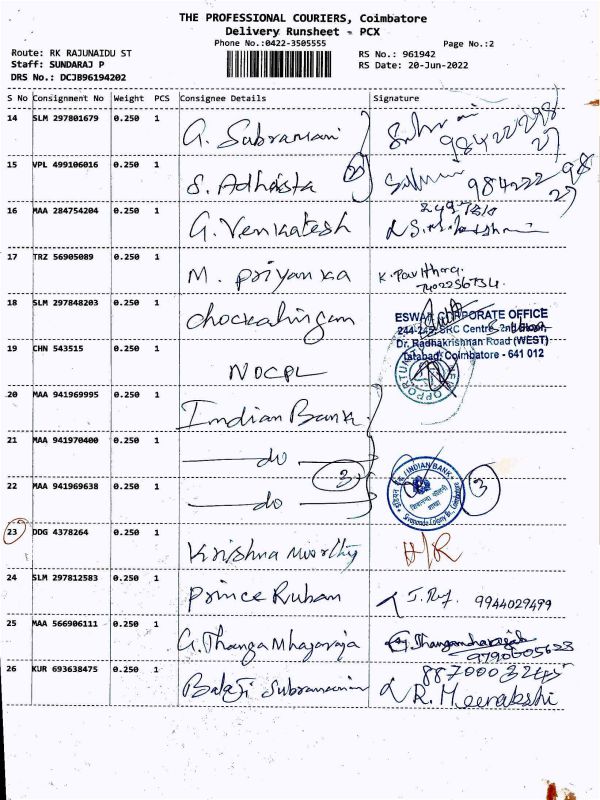 THE PROFESSIONAL COURIERS, Coimbatore
Delivery Runsheet - PCX
Phone No.:0422-3505555
Page No.:2
Route: RK RAJUNAIDU ST
Staff: SUNDARAJ P
DRS No.: DCJB96194202
RS No.: 961942
RS Date: 20-Jun-2022
S No Consignment No Weight PCS Consignee Details Signature
14 SLM 297801679 0.250 1 G. Subramani 9842222298
27
15 VPL 499106016 0.250 1 S. Adhista 2 984222298
27
16 MAA 284754204 0.250 1 G. Venkatesh
17 TRZ 56905089 0.250 1 M. Priyanka K. Pavithra.
7402256734.
18 SLM 297848203 0.250 1 chockalingam
ESWAR CORPORATE OFFICE
244-245, SRC Centre, 2nd Floor
Dr. Radhakrishnan Road (WEST)
Tatabad, Coimbatore - 641 012
19 CHN 543515 0.250 1 NOCPL
OPPORTUNITY NEW
20 MAA 941969995 0.250 1 Indian Bank
21 MAA 941970400 0.250 1 do
3
22 MAA 941969638 0.250 1 do INDIAN BANK 3
Sivananda Colony Br. Coimbatore
23 DDG 4378264 0.250 1 Krishna moorthy H/R
24 SLM 297812583 0.250 1 Prince Ruban 9944029499
25 MAA 566906111 0.250 1 G. Thanga Mhajaraja
9790605623
26 KUR 693638475 0.250 1 Balaji Subramanian 8870003245
R. Meenakshi